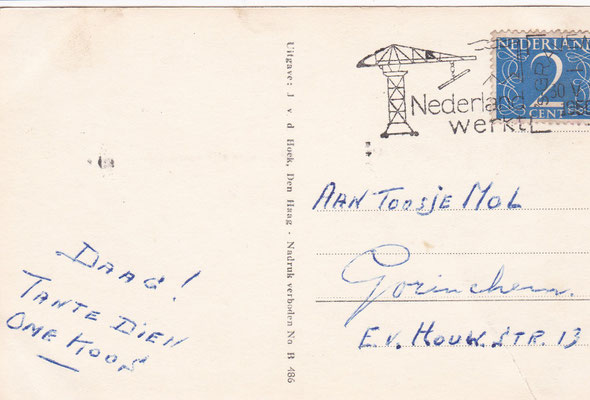 DAAG!
TANTE DIEN
OME KOOS
Uitgave: J v d Hoek, Den Haag - Nadruk verboden No B 486
Nederland
werkt
NEDERLAND
2
CENT
AAN TOOSJE MOL
Gorinchem.
E.V. HOUW.STR. 13